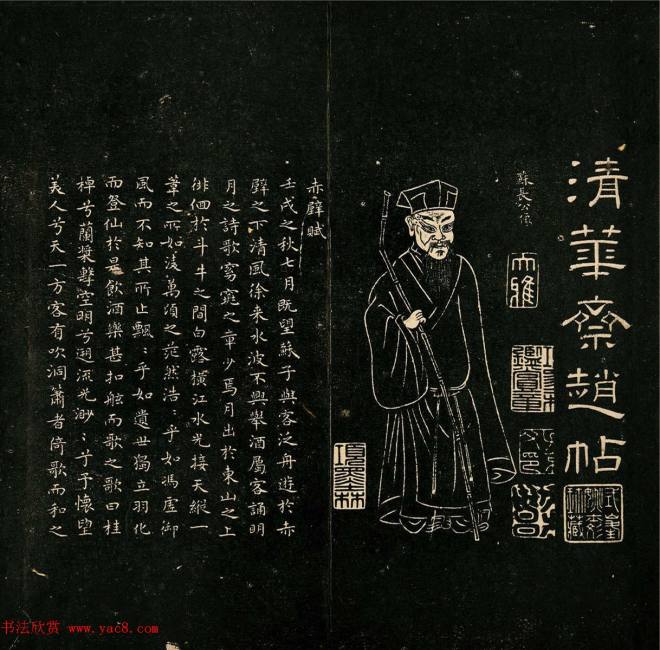 清華齋趙帖
蘇長公像
大雅
赤壁賦
壬戌之秋七月既望蘇子與客泛舟遊於赤
壁之下清風徐来水波不興舉酒屬客誦明
月之詩歌窈窕之章少焉月出於東山之上
徘徊於斗牛之間白露橫江水光接天縱一
葦之所如淩萬頃之茫然浩:乎如馮虛御
風而不知其所止飄:乎如遺世獨立羽化
而登仙於是飲酒樂甚扣舷而歌之歌曰桂
棹兮蘭槳擊空明兮溯流光渺:兮予懷望
美人兮天一方客有吹洞簫者倚歌而和之
书法欣赏 www.yac8.com